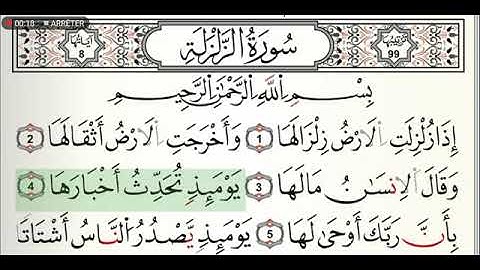 00:18 ARRÊTER
آيَاتُهَا 8 سُورَةُ الزَّلْزَلَةِ 99
بِسْمِ اللَّهِ الرَّحْمَٰنِ الرَّحِيمِ
إِذَا زُلْزِلَتِ الْأَرْضُ زِلْزَالَهَا 1 وَأَخْرَجَتِ الْأَرْضُ أَثْقَالَهَا 2
وَقَالَ الْإِنسَانُ مَا لَهَا 3 يَوْمَئِذٍ تُحَدِّثُ أَخْبَارَهَا 4
بِأَنَّ رَبَّكَ أَوْحَىٰ لَهَا 5 يَوْمَئِذٍ يَصْدُرُ النَّاسُ أَشْتَاتًا